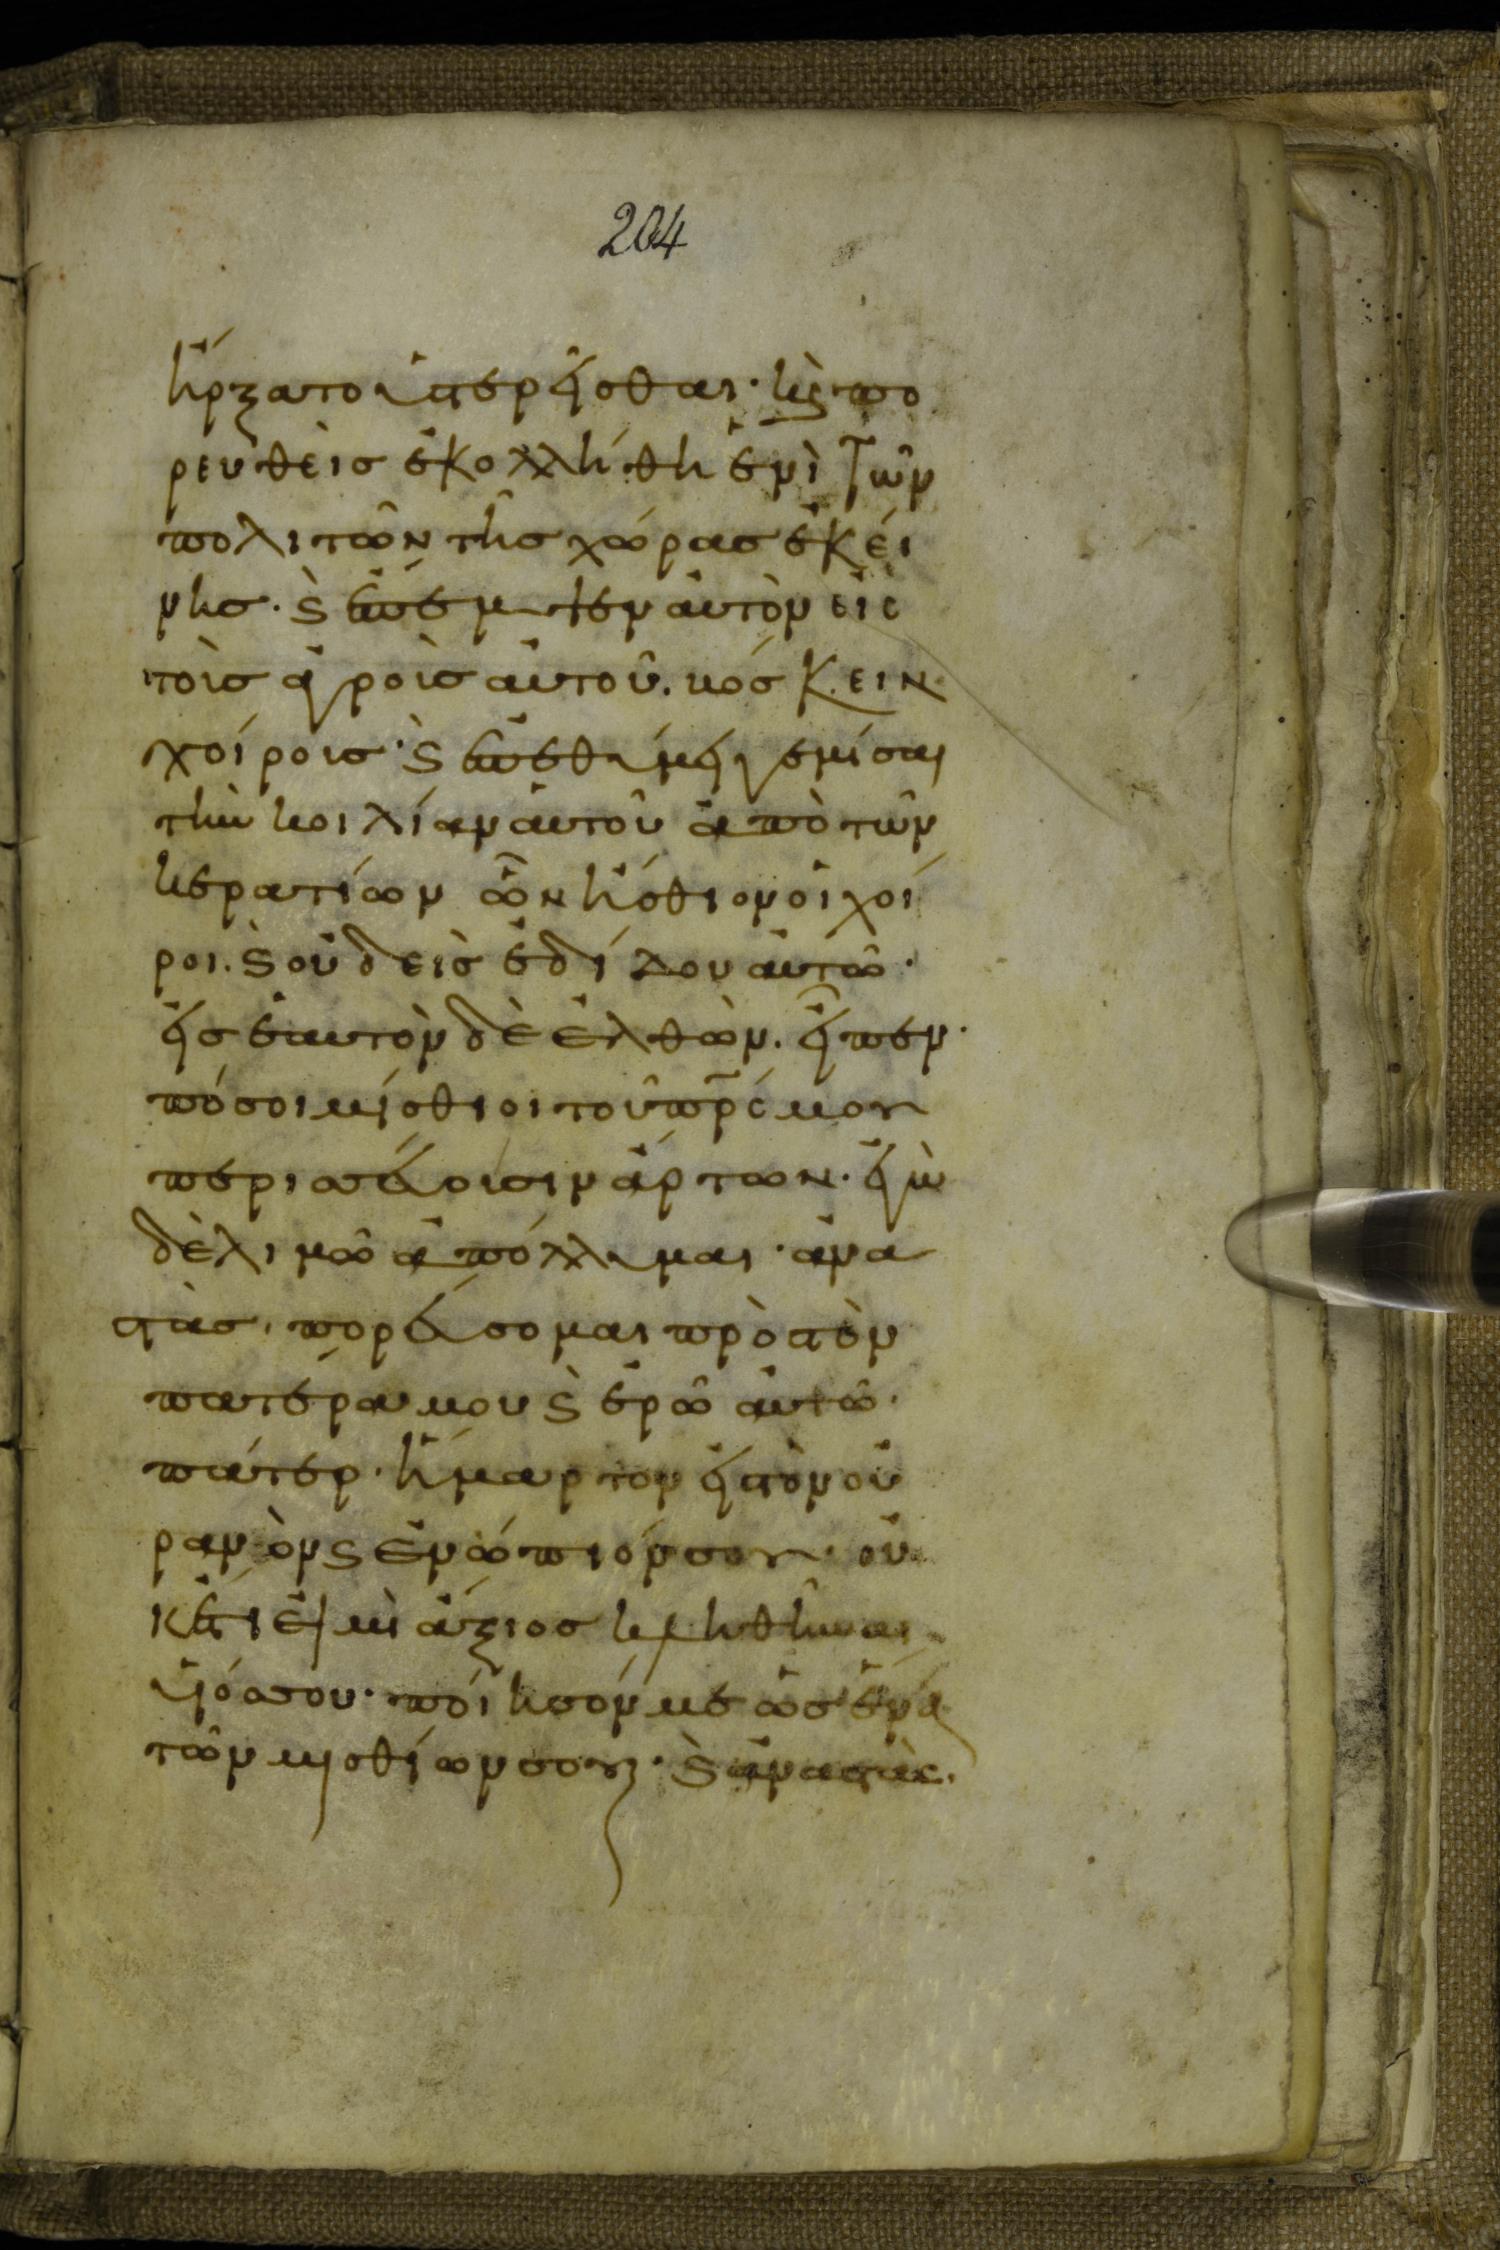 204
ἤρξατο ὑστερεῖσθαι· καὶ πο
ρευθεὶς ἐκολλήθη ἑνὶ τῶν
πολιτῶν τῆς χώρας ἐκεί
νης· ϛ ἔπεμψεν αὐτὸν εἰς
τοὺς ἀγροὺς αὐτοῦ. βόσκειν
χοίρους· ϛ ἐπεθύμει γεμίσαι
τὴν κοιλίαν αὐτοῦ ἀπὸ τῶν
κερατίων ὧν ἤσθιον οἱ χοί
ροι. ϛ οὐδεὶς ἐδίδου αὐτῶ·
εἰς ἑαυτὸν δὲ ἐλθὼν. εἶπεν·
πόσοι μίσθιοι τοῦ πρς μου
περισσεύουσιν ἄρτων· ἐγὼ
δὲ λιμῶ ἀπόλλυμαι· ἀνα
στὰς. πορεύσομαι πρὸς τὸν
πατέρα μου ϛ ἐρῶ αὐτῶ·
πάτερ· ἥμαρτον εἰς τὸν οὐ
ρανὸν ϛ ἐνώπιόν σου· οὐ
κέτι εἰμὶ ἄξιος κληθῆναι
υἱός σου· ποίησόν με ὡς ἕνα
τῶν μισθίων σου· ϛ ἀναστὰς.